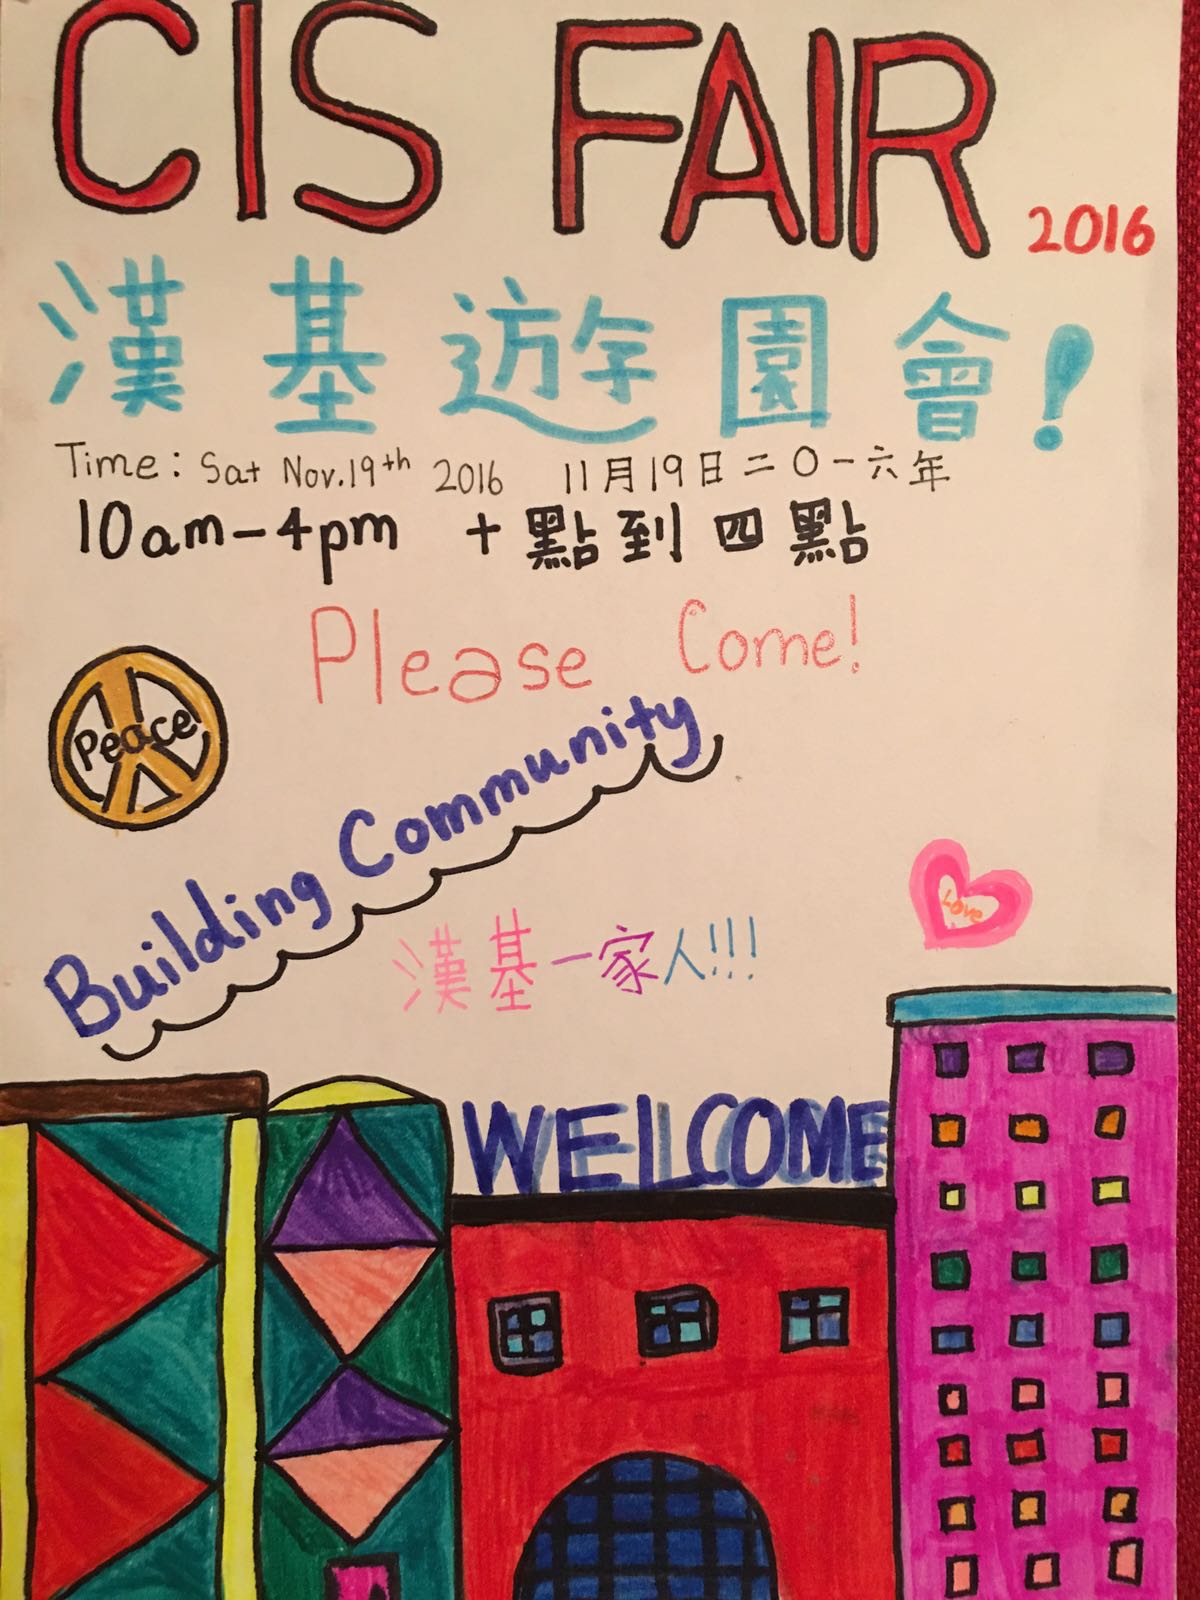 CIS FAIR 2016
漢基遊園會!
Time: Sat Nov. 19th 2016 11月19日二〇一六年
10am-4pm 十點到四點
Please Come!
Peace
Building Community
Love
漢基一家人!!!
WELCOME